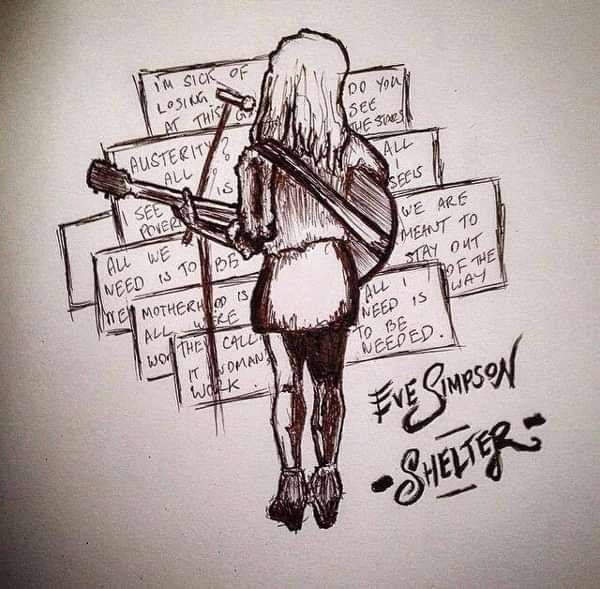 I'M SICK OF
LOSING
AT THIS
DO YOU
SEE
THE STARS
AUSTERITY?
ALL IS
ALL
I
SEE IS
I SEE
POVER
WE ARE
MEANT TO
STAY OUT
OF THE
WAY
ALL WE
NEED IS TO BE
MOTHERHOOD IS
ALL WERE
ALL I
NEED IS
TO BE
NEEDED.
THEY CALL
IT WOMAN'S
WORK.
EVE SIMPSON
SHELTER